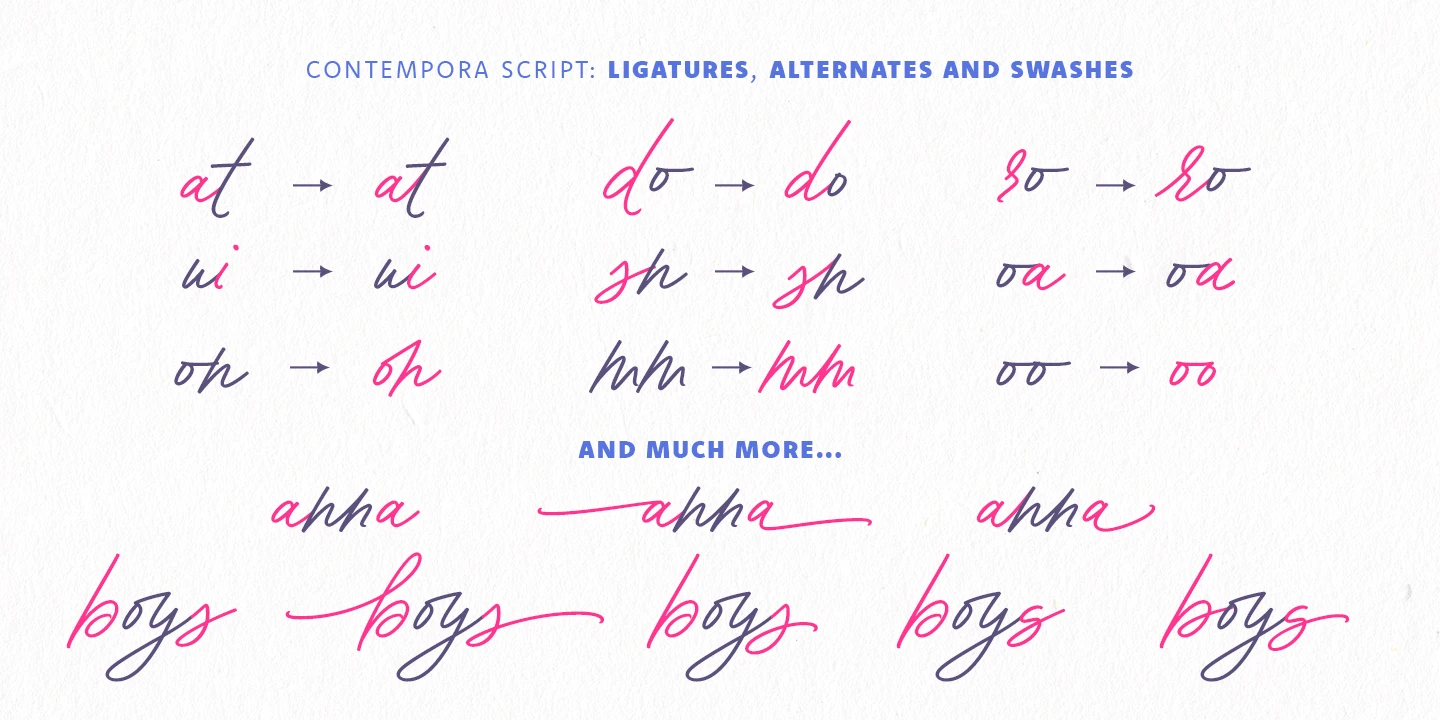 CONTEMPORA SCRIPT: LIGATURES, ALTERNATES AND SWASHES
at → at do → do ro → ro
ui → ui sn → sn oa → oa
on → on mm → mm oo → oo
AND MUCH MORE...
anna anna anna
boys boys boys boys boys